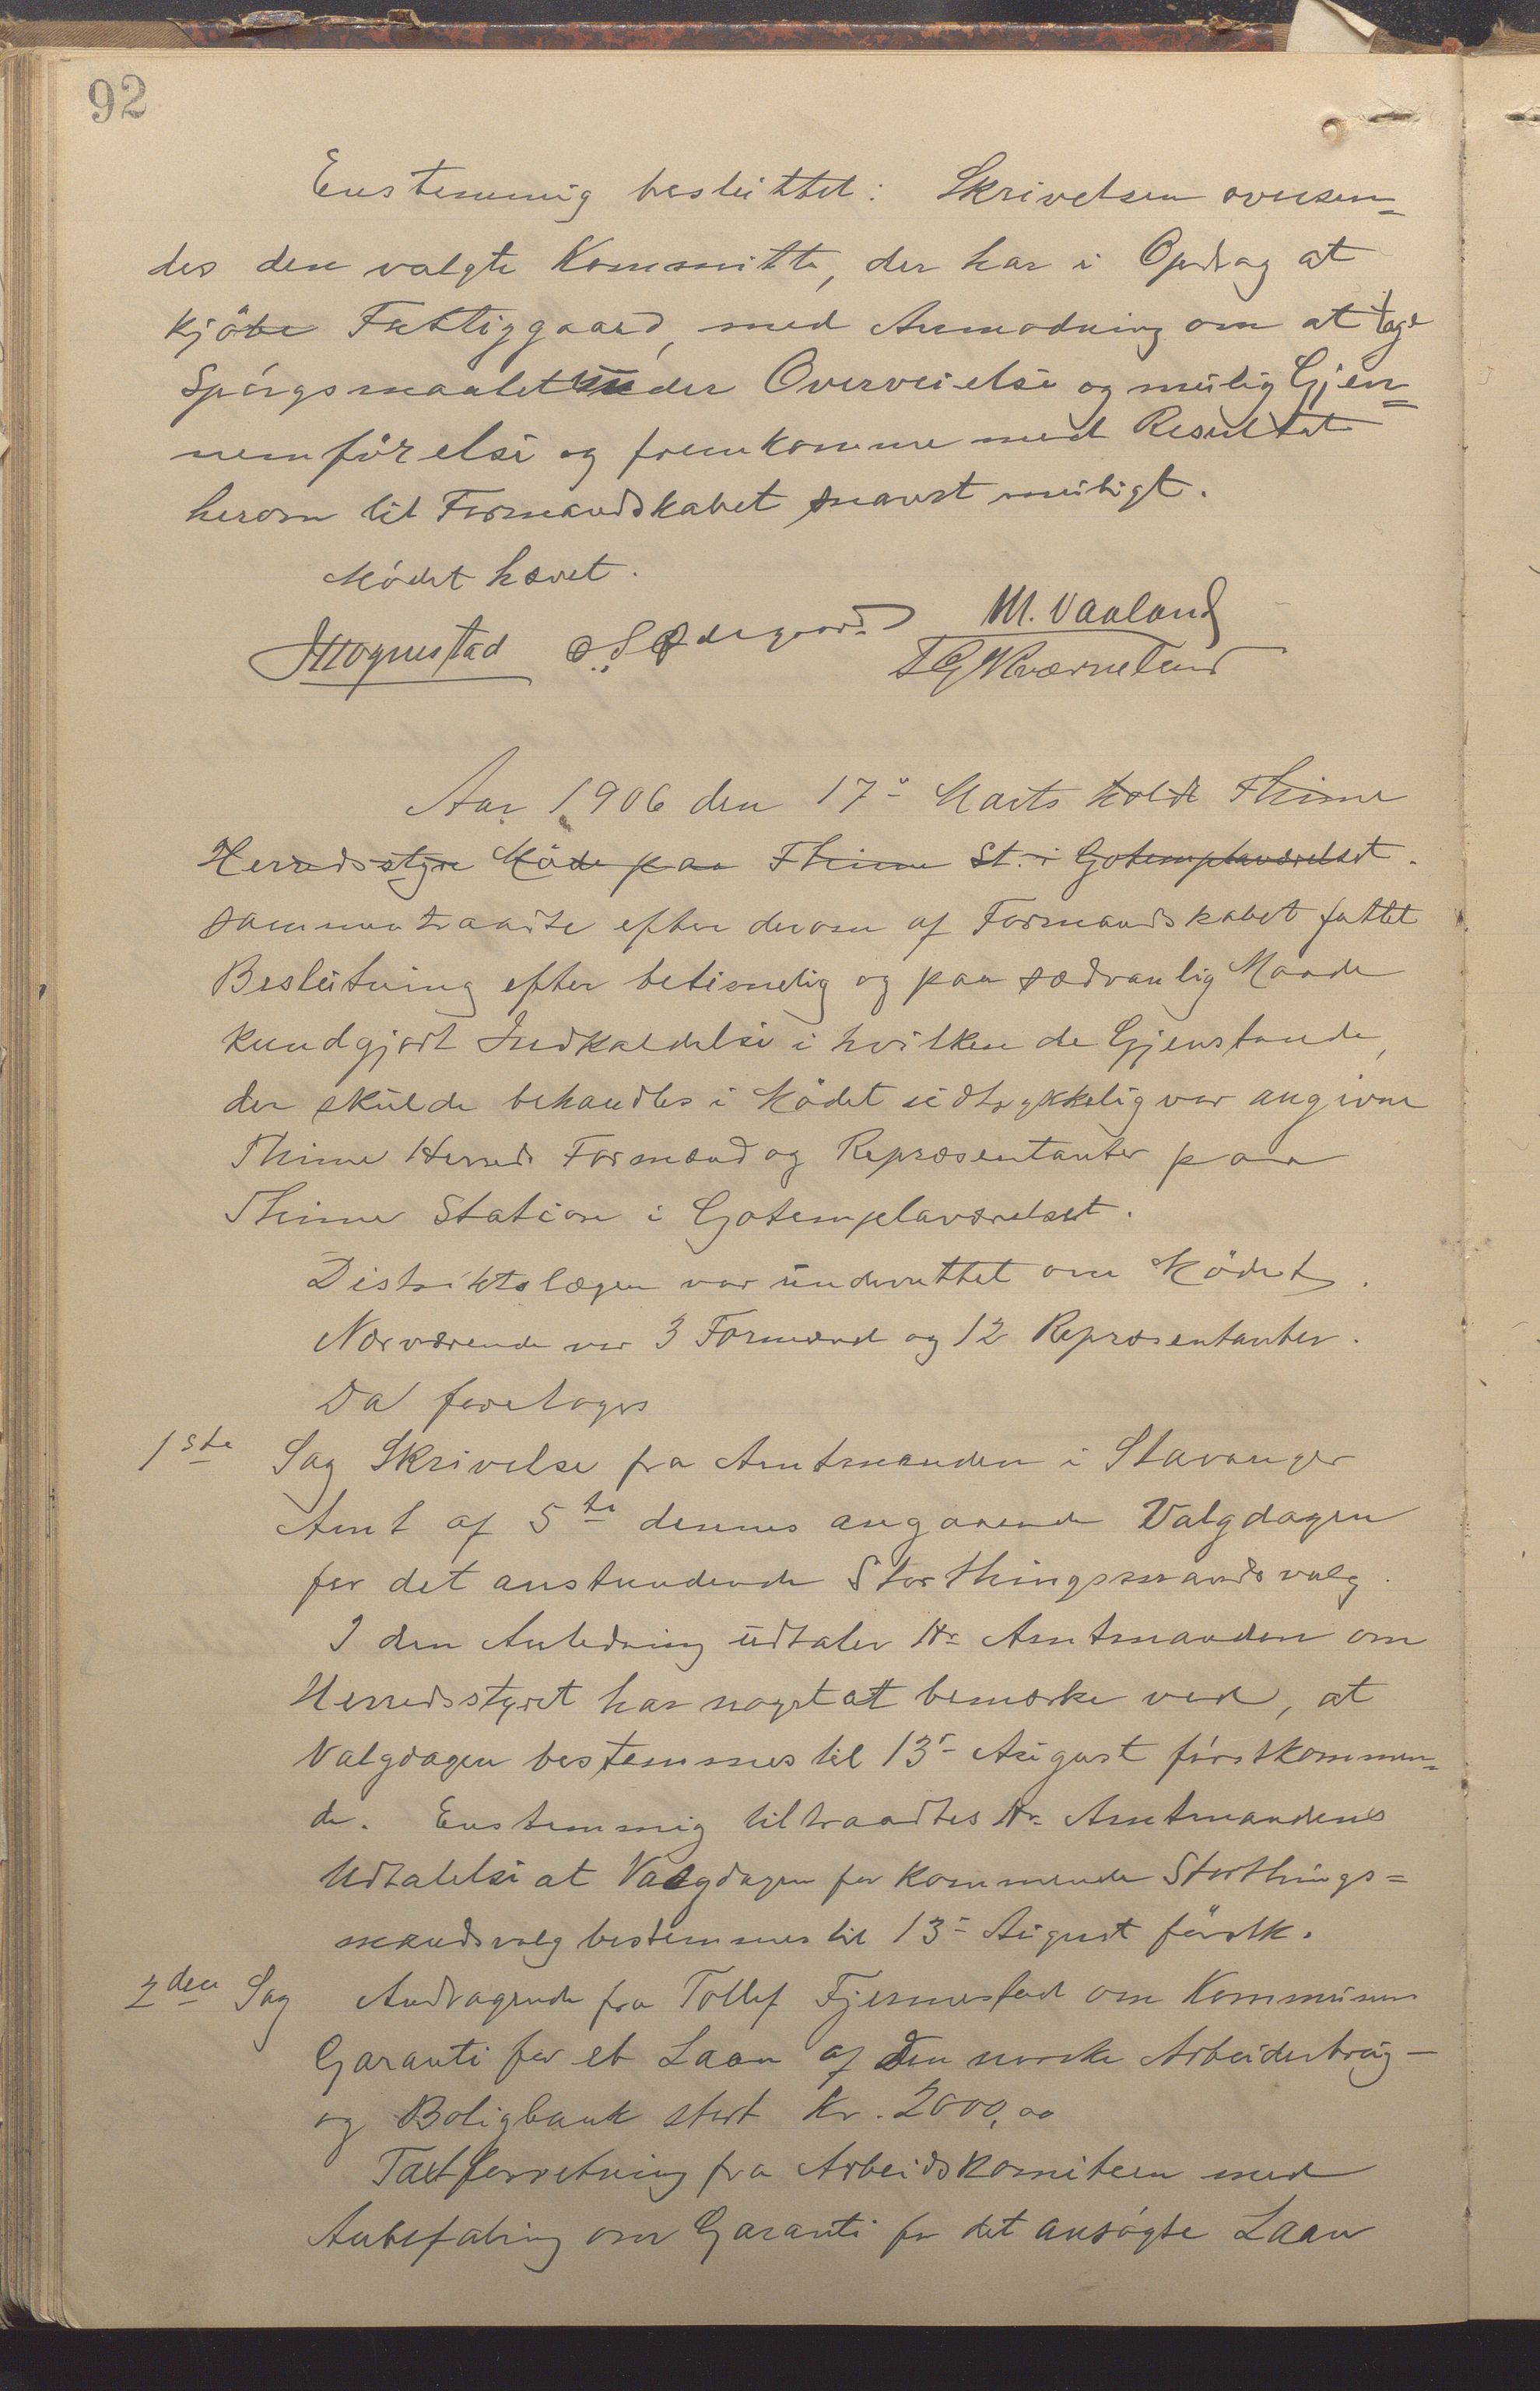 92
Enstemmig besluttet: Skrivelsen oversen=
des den valgte Kommitte, der har i Opdrag at
kjöbe Fattiggaard, med Anmodning om at tage
Spórgsmaalet under Overveielse og mulig Gjen=
nemförelse og fremkomme med Resultat
herom til Formandskabet snarest muligt.
Módet hævet.
M. Vaaland
Aar 1906 den 17de Marts holdt Thime
Herredsstyre Möde paa Thime St. i Gotemplaværelset.
sammentraadte efter derom af Formandskabet fattet
Beslutning efter betimelig og paa sædvanlig Maade
kundgjort Indkaldelse i hvilken de Gjenstande,
der skulde behandles i Mödet udtrykkelig var angivne
Thime Herreds Formænd og Repræsentanter paa
Thime Station i Gotemplaværelset.
Distriktslægen var underrettet om Mödet.
Nærværende var 3 Formænd og 12 Repræsentanter.
Da foretoges
1ste Sag Skrivelse fra Amtmanden i Stavanger
Amt af 5te dennes angaaende Valgdagen
for det anstundende Storthingsmandsvalg.
I den Anledning udtaler Hr Amtmanden om
Herredsstyret har noget at bemærke ved, at
Valgdagen bestemmes til 13- August förstkommen=
de. Enstemmig tiltraadtes Hr Amtmandens
Udtalelse at Valgdagen for kommende Storthings=
mandsvalg bestemmes til 13- August förstk.
2den Sag Andragende fra Tollef Fjermestad om Kommunens
Garanti for et Laan af Den norske Arbeiderbrug-
og Boligbank stort Kr. 2000,00
Taxtforretning fra Arbeidskomiteen med
Anbefaling om Garanti for det ansögte Laan